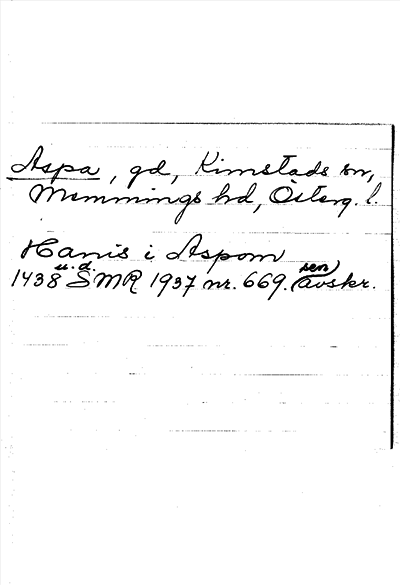 Aspa, gd, Kimstads sn,
Memmings hd, Österg. l.
Hanis i Aspom
1438 u. d. SMR 1937 nr. 669. (sen) avskr.